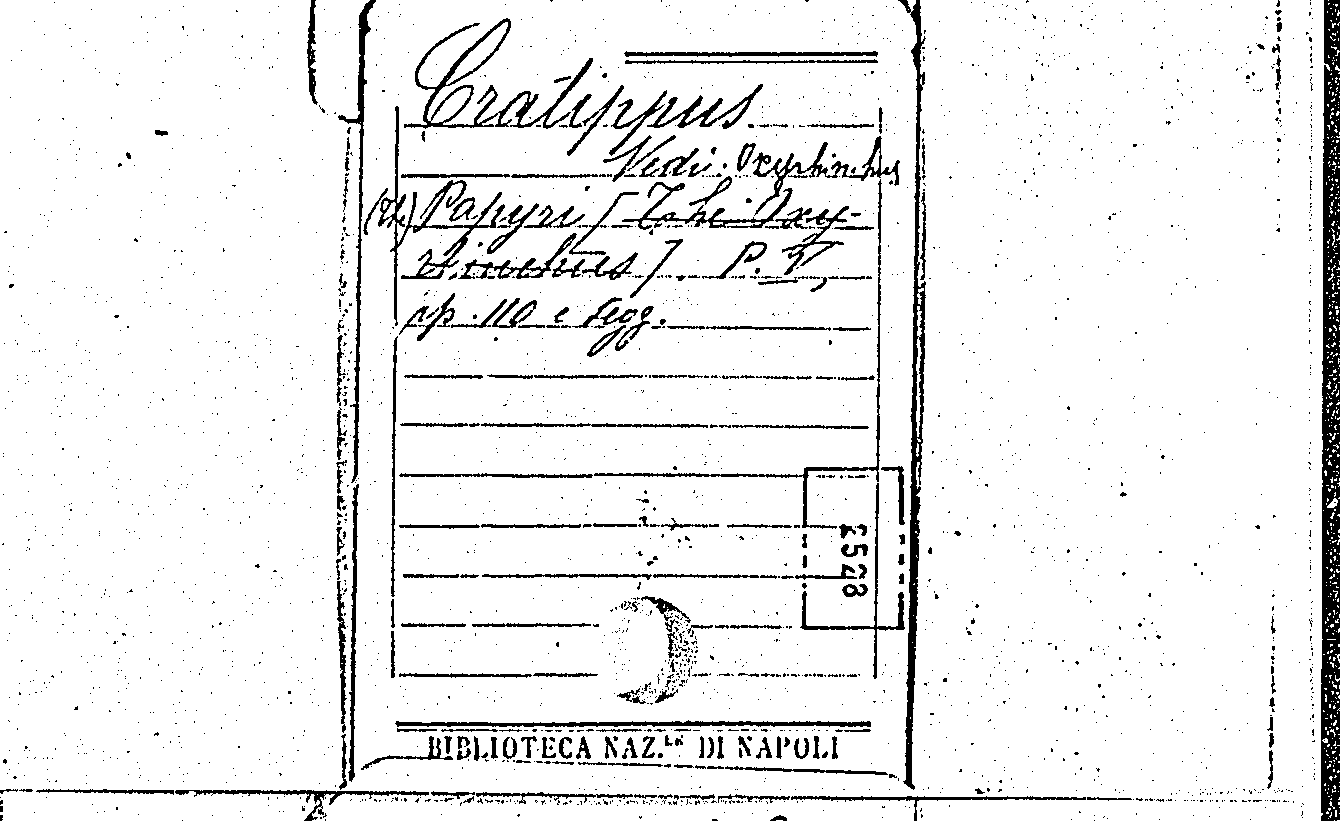 Cratippus
Vedi: Oxyrhinchus
(The) Papyri [The Oxy-
rhinchus]. P. V,
pp. 110 e segg.
2528
BIBLIOTECA NAZ.LE DI NAPOLI